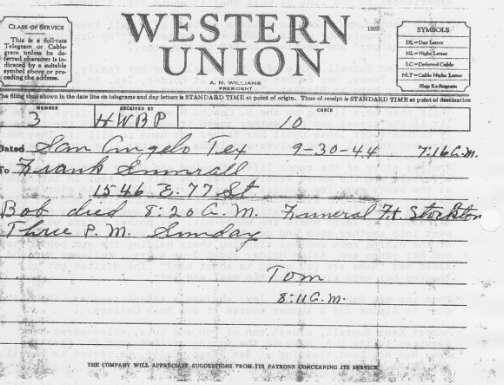 CLASS OF SERVICE
This is a full-rate
Telegram or Cable-
gram unless its de-
ferred character is in-
dicated by a suitable
symbol above or pre-
ceding the address.
WESTERN
UNION
A. N. WILLIAMS
PRESIDENT
SYMBOLS
DL=Day Letter
NL=Night Letter
LC=Deferred Cable
NLT=Cable Night Letter
Ship Radiogram
filing time shown in the date line on telegrams and day letters is STANDARD TIME at point of origin. Time of receipt is STANDARD TIME at point of destination
NUMBER RECEIVED BY CHECK
3 HWBP 10
Dated San Angelo Tex 9-30-44 7:16 A.M.
To Frank Sumrall
1546 E. 77 St
Bob died 8:20 A.M. Funeral Ft Stockton
Three P.M. Sunday
Tom
8:11 A.M.
THE COMPANY WILL APPRECIATE SUGGESTIONS FROM ITS PATRONS CONCERNING ITS SERVICE